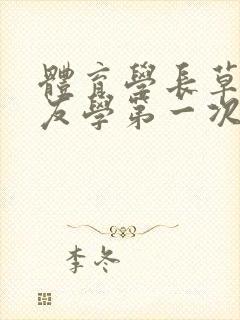 體育學長草
友學第一次
李冬